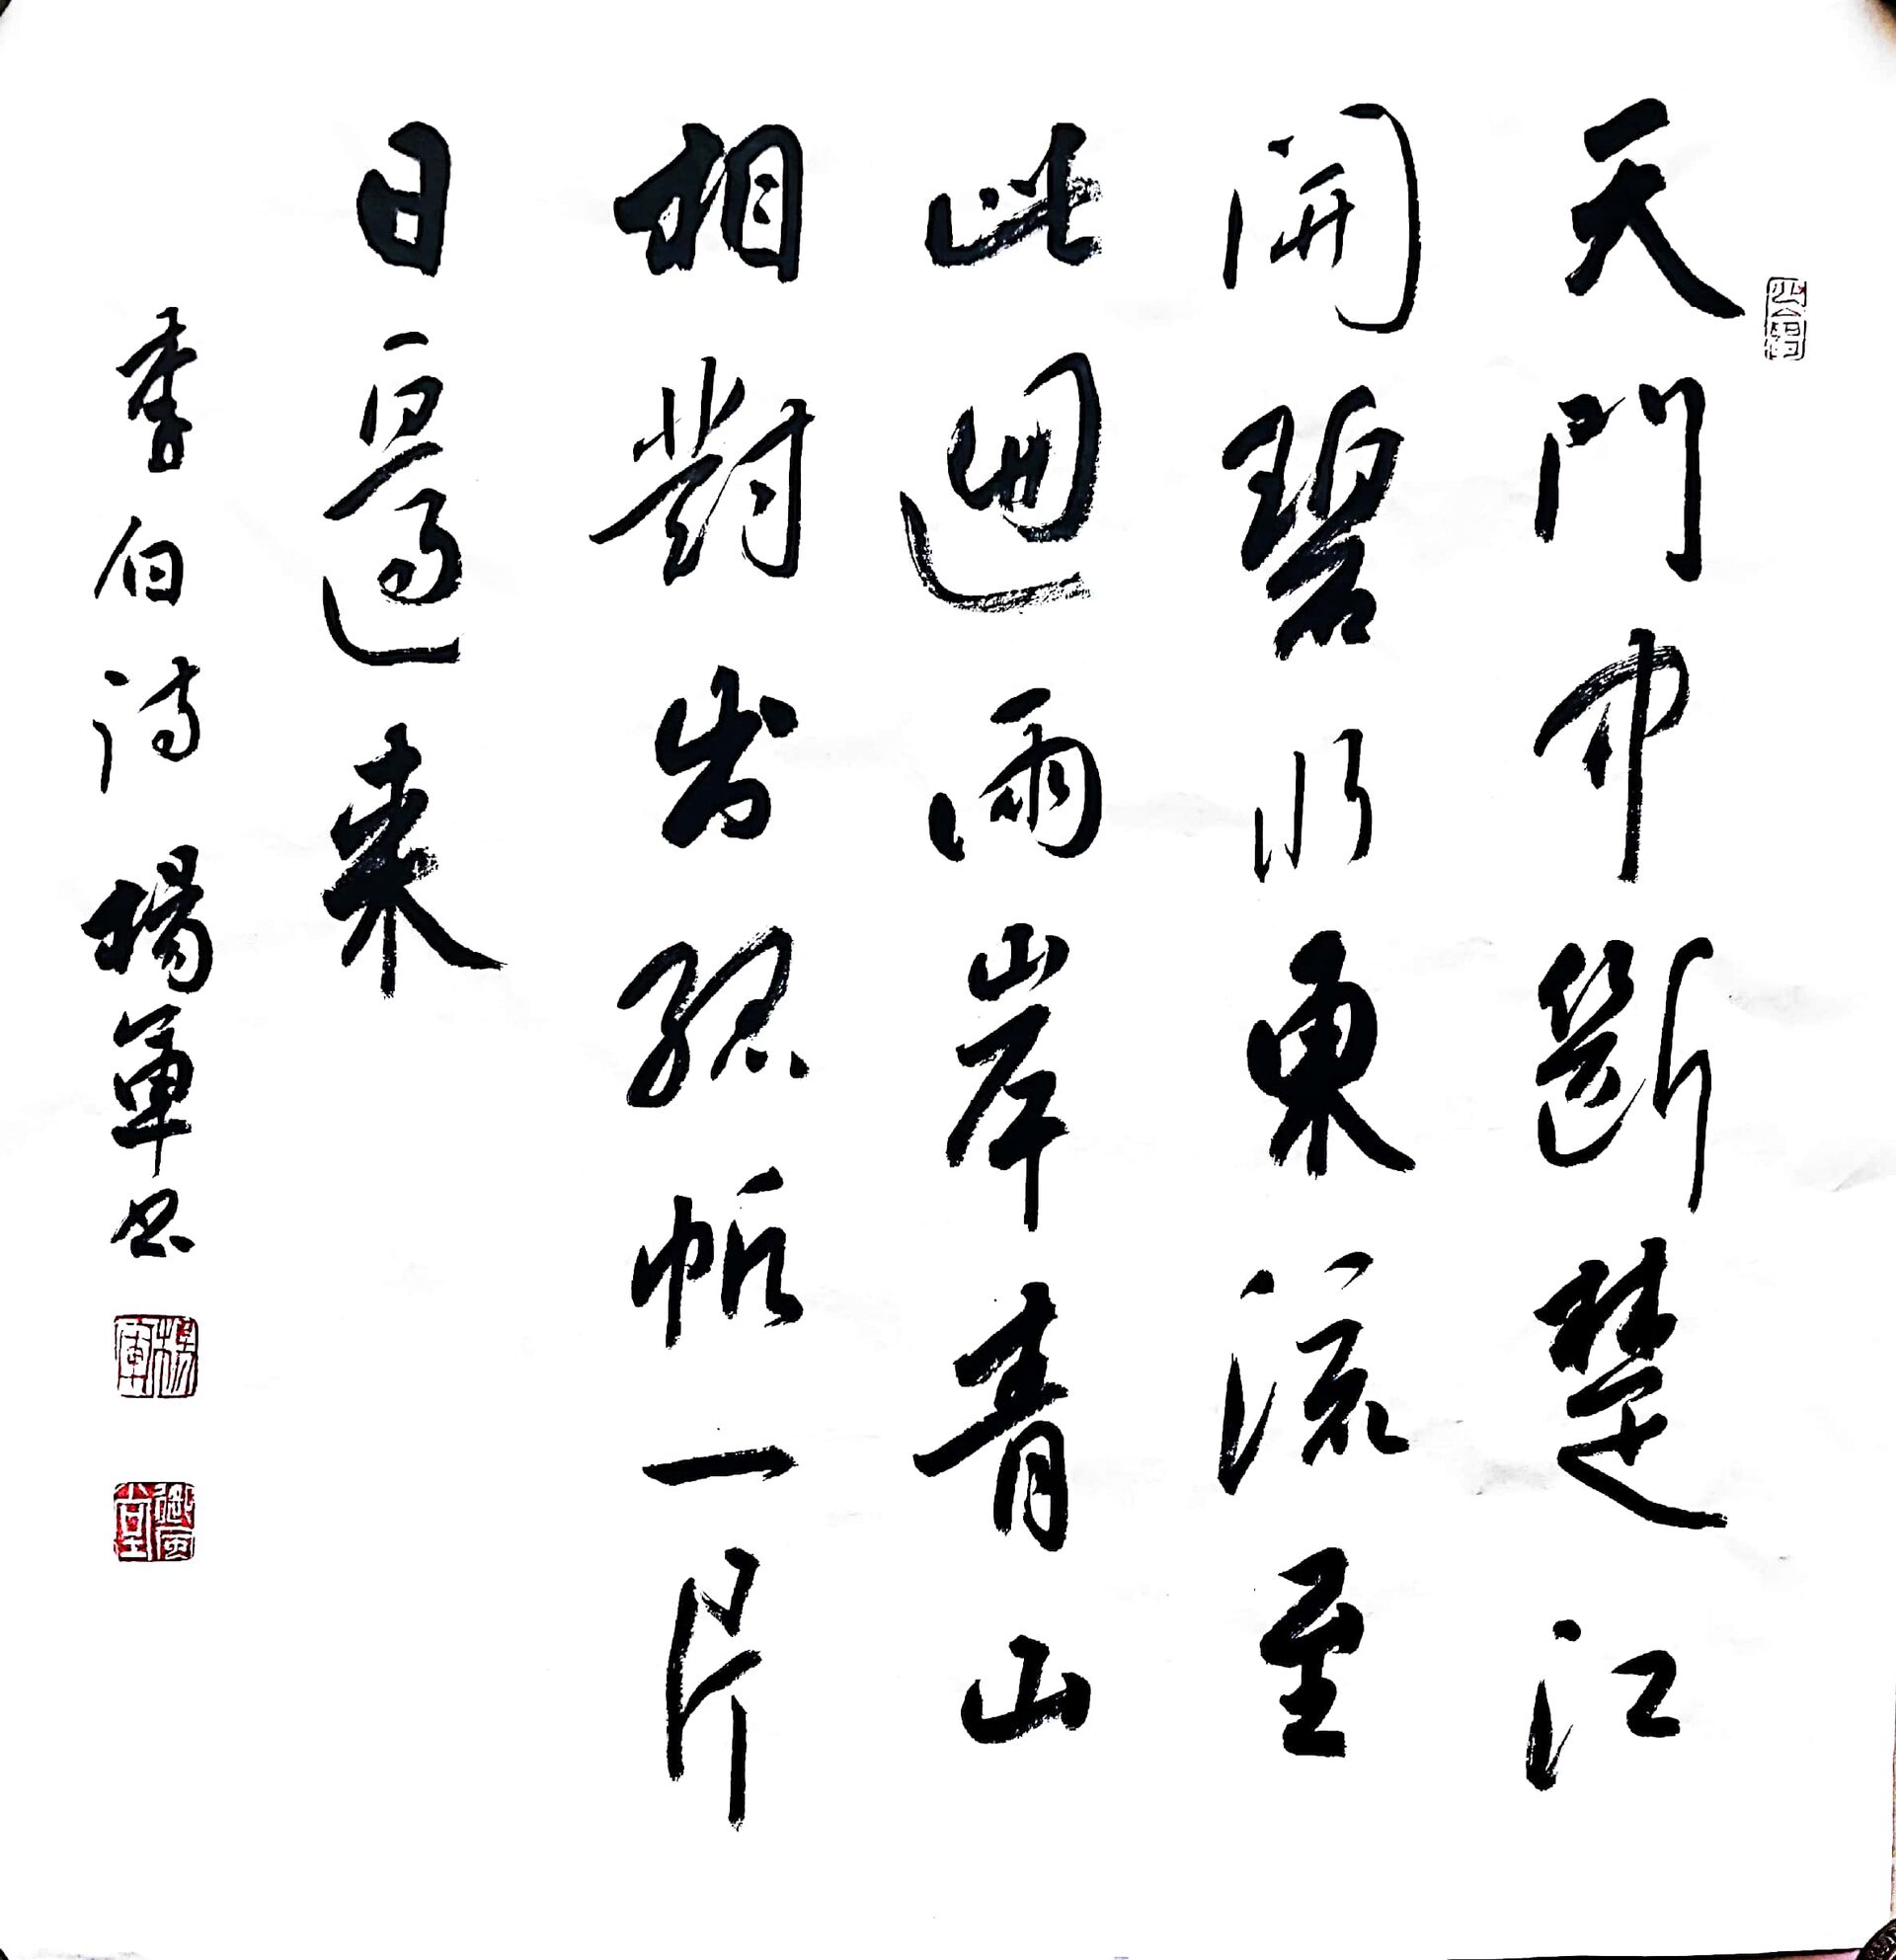 天門中斷楚江
開碧水東流至
此迴兩岸青山
相對出孤帆一片
日邊来
李白詩 楊軍书
楊軍